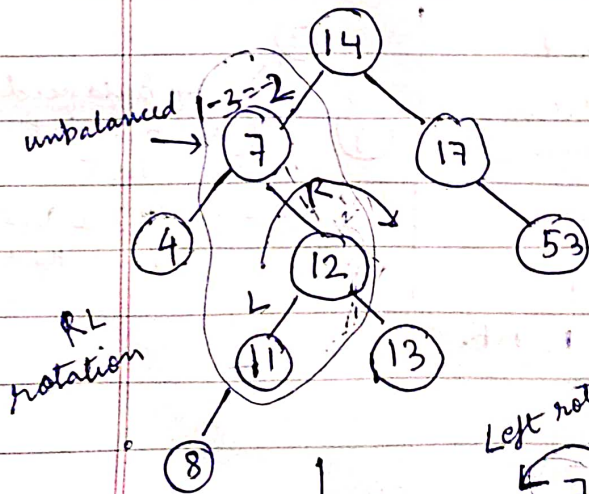 14
1-3=-2
unbalanced
7
17
R
4
12
53
L
RL
rotation
11
13
8
Left rot
7